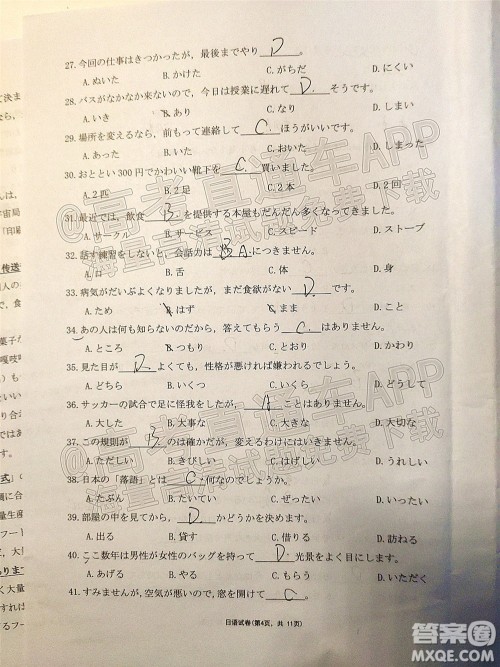 27. 今回の仕事はきつかったが，最後までやり D 。
A. ぬいた B. かけた C. がちだ D. にくい
28. バスがなかなか来ないので，今日は授業に遅れて D そうです。
A. いき B. あり C. なり D. しまい
29. 場所を変えるなら，前もって連絡して C ほうがいいです。
A. あった B. いた C. おいた D. しまった
30. おととい300円でかわいい靴下を C 買いました。
A. 2匹 B. 2足 C. 2本 D. 2回
31. 最近では，飲食 B を提供する本屋もだんだん多くなってきました。
A. サークル B. サービス C. スピード D. ストーブ
32. 話す練習をしないと，会話力は A につきません。
A. ロ B. 舌 C. 体 D. 身
33. 病気がだいぶよくなりましたが，まだ食欲がない D です。
A. ため B. はず C. まま D. こと
34. あの人は何も知らないのだから，答えてもらう C はありません。
A. ところ B. つもり C. とおり D. かわり
35. 見た目が D よくても，性格が悪ければ嫌われるでしょう。
A. どちら B. いくつ C. いくら D. どうして
36. サッカーの試合で足に怪我をしたが， A ことはありません。
A. 大した B. 大事な C. 大きな D. 大切な
37. この規則が B のは確かだが，変えるわけにはいけません。
A. ただしい B. きびしい C. はげしい D. うれしい
38. 日本の「落語」とは C なのでしょうか。
A. たぶん B. たいてい C. ぜったい D. いったい
39. 部屋の中を見てから， D かどうかを決めます。
A. 出る B. 貸す C. 借りる D. 訪ねる
40. ここ数年は男性が女性のバッグを持って D 光景をよく目にします。
A. あげる B. やる C. もらう D. いただく
41. すみませんが，空気が悪いので，窓を開けて C 。
日语试卷(第4页，共 11页)
@高考直通车APP
海量高清试题免费下载
@高考直通车APP
海量高清试题免费下载
答案圈
MXQE.COM